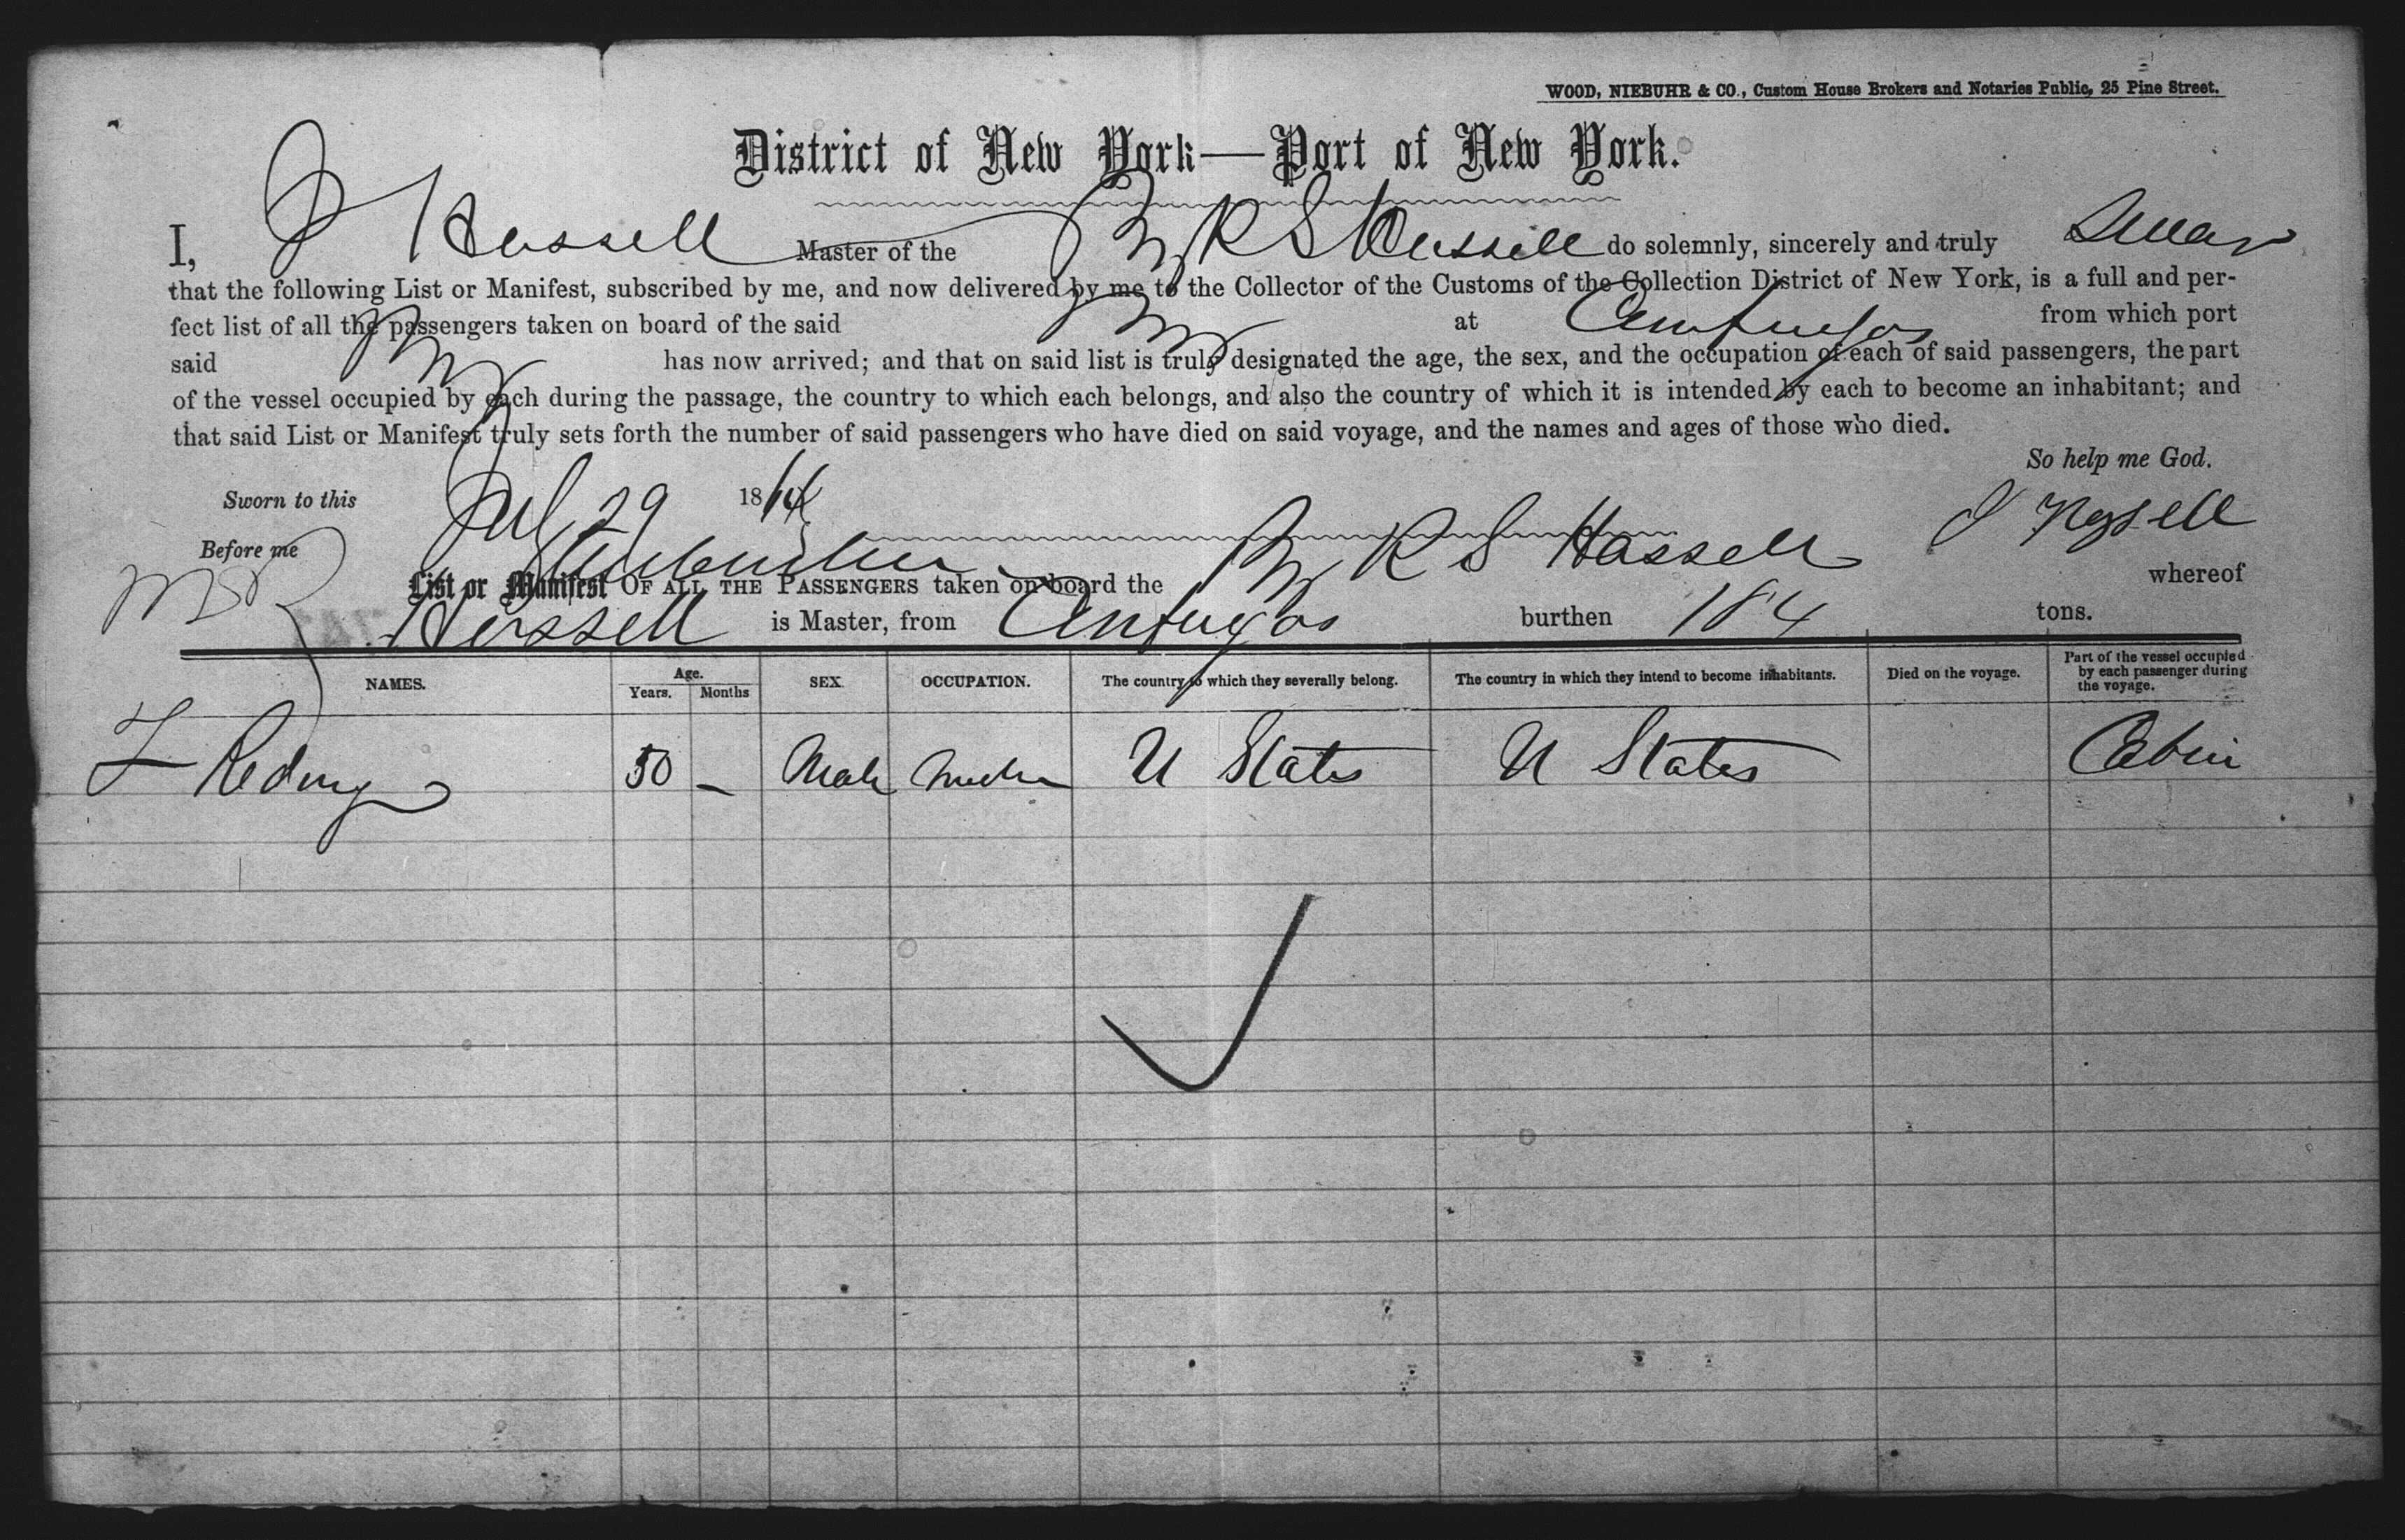 WOOD, NIEBUHR & CO., Custom House Brokers and Notaries Public, 25 Pine Street.
District of New York—Port of New York.
I, J Hassell Master of the Brig R S Hassell do solemnly, sincerely and truly swear
that the following List or Manifest, subscribed by me, and now delivered by me to the Collector of the Customs of the Collection District of New York, is a full and per-
fect list of all the passengers taken on board of the said Brig at Cienfuegos from which port
said Brig has now arrived; and that on said list is truly designated the age, the sex, and the occupation of each of said passengers, the part
of the vessel occupied by each during the passage, the country to which each belongs, and also the country of which it is intended by each to become an inhabitant; and
that said List or Manifest truly sets forth the number of said passengers who have died on said voyage, and the names and ages of those who died.
So help me God.
Sworn to this 29 18
J Hassell
Before me
List or Manifest OF ALL THE PASSENGERS taken on board the Brig R S Hassell whereof
Hassell is Master, from Cienfuegos burthen 184 tons.
NAMES. Age. Years. Months SEX. OCCUPATION. The country to which they severally belong. The country in which they intend to become inhabitants. Died on the voyage. Part of the vessel occupied by each passenger during the voyage.
50 – Male U States U States Cabin